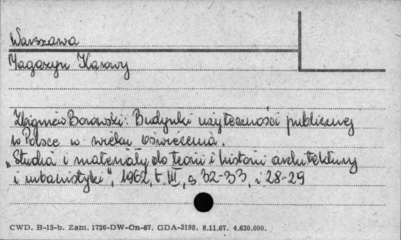 Warszawa
Magazyn Karowy
Zbigniew Borawski: Budynki użyteczności publicznej
w Polsce w wieku oświecenia.
"Studia i materiały do teorii i historii architektury
i urbanistyki", 1962, t. III, s 32-33, i 28-29
CWD. B-15-b. Zam. 1726-DW-On-67. GDA-3198. 8.11.67. 4.630.000.